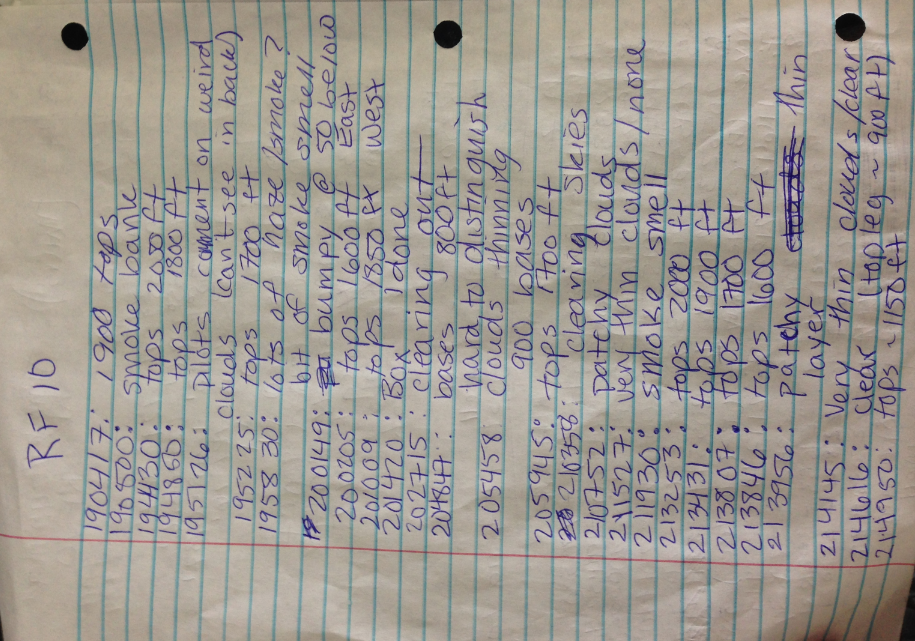 RF 10
190417: 1900 tops
190500: smoke bank
194130: tops 2050 ft
194850: tops 1800 ft
195126: pilots comment on weird
clouds (can't see in back)
195225: tops 1700 ft
195830: lots of haze/smoke?
bit of smoke smell
200149: bumpy @ 50 below
200205: tops 1600 ft East
201009: tops 1850 ft West
201420: Box 1 done
202715: clearing out
204847: bases 800 ft
hard to distinguish
205458: clouds thinning
900 bases
205945: tops 1700 ft
210358: clearing skies
210752: patchy clouds
211527: very thin clouds/none
211930: smoke smell
213253: tops 2000 ft
213431: tops 1900 ft
213807: tops 1700 ft
213846: tops 1600 ft
213956: patchy thin
layer
214145: Very thin clouds/clear
214616: clear (top leg ~ 900 ft)
214950: tops ~ 1150 ft